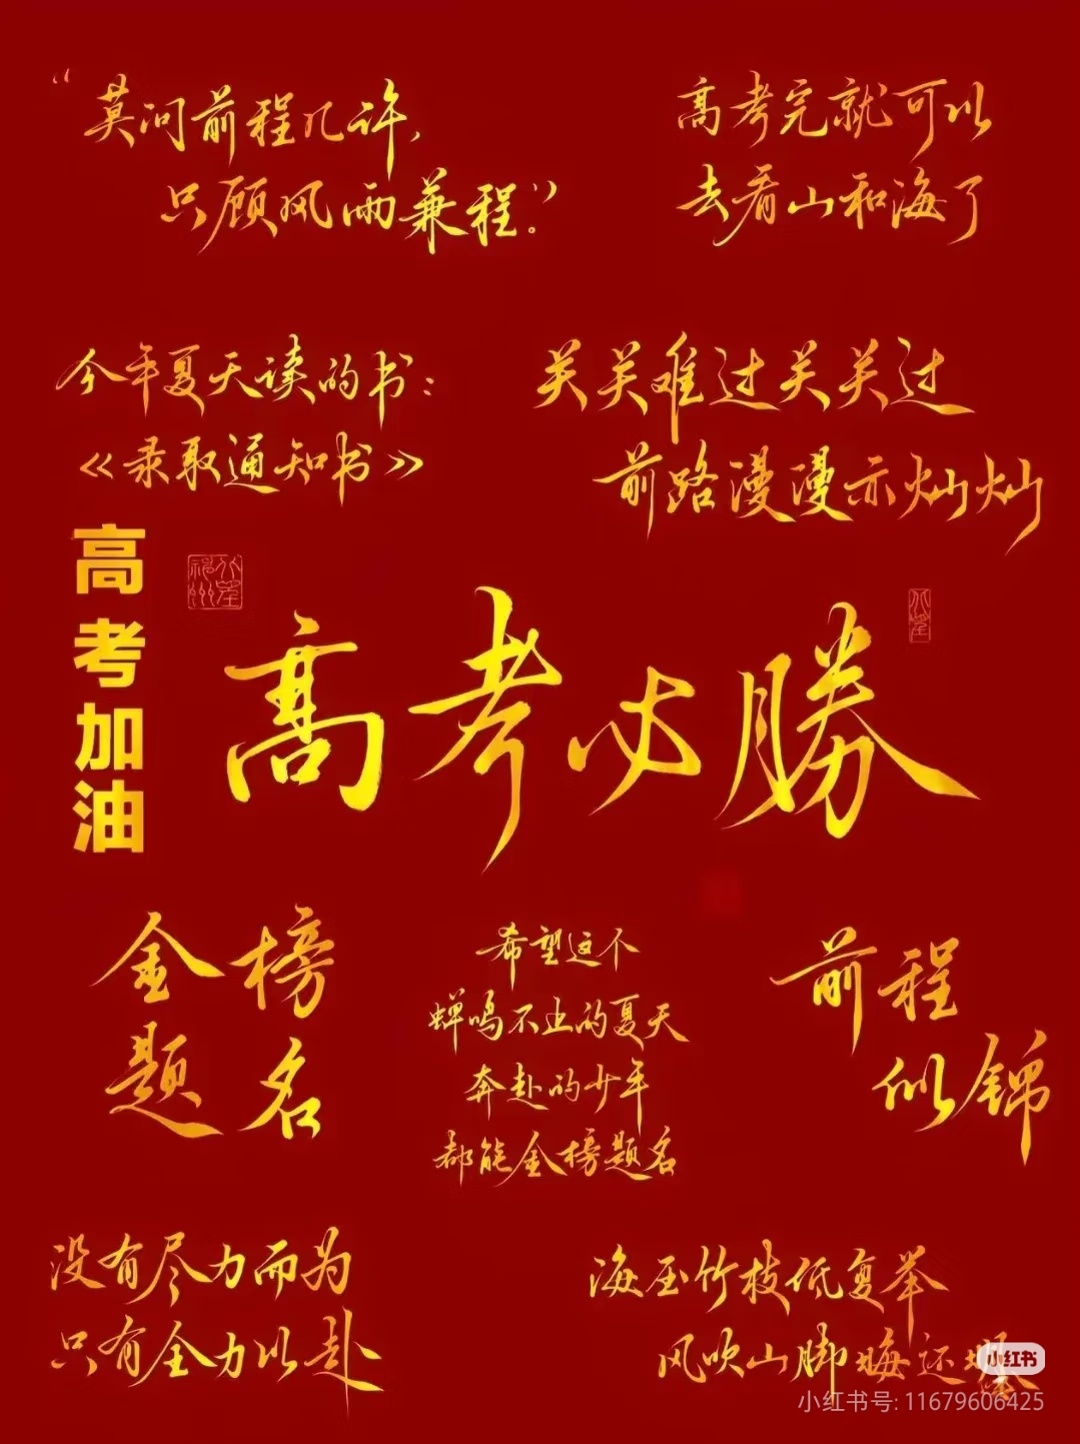 “莫问前程几许，
只顾风雨兼程。”
高考完就可以
去看山和海了
今年夏天读的书：
《录取通知书》
关关难过关关过
前路漫漫亦灿灿
高考加油
高考必勝
金榜
题名
希望这个
蝉鸣不止的夏天
奔赴的少年
都能金榜题名
前程
似锦
没有尽力而为
只有全力以赴
海压竹枝低复举
风吹山脚晦还
小红书
小红书号: 11679606425